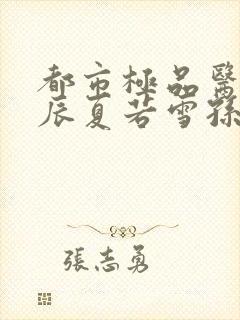 都市極品醫
辰夏若雪孫
張志勇